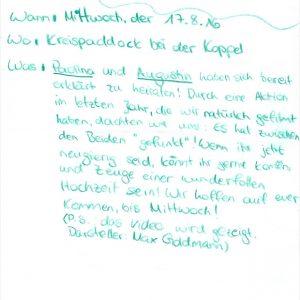 Wann: Mittwoch, der 17.8.16
Wo: Kreispaddock bei der Koppel
Was: Paulina und Augustin haben sich bereit
erklärt zu heiraten! Durch eine Aktion
im letzten Jahr, die wir natürlich gefilmt
haben, dachten wir uns: Es hat zwischen
den Beiden "gefunkt"! Wenn ihr jetzt
neugierig seid, könnt ihr gerne kommen
und Zeuge einer wundervollen
Hochzeit sein! Wir hoffen auf euer
Kommen, bis Mittwoch!
(P.S. das Video wird gezeigt.
Darsteller: Max Goldmann)